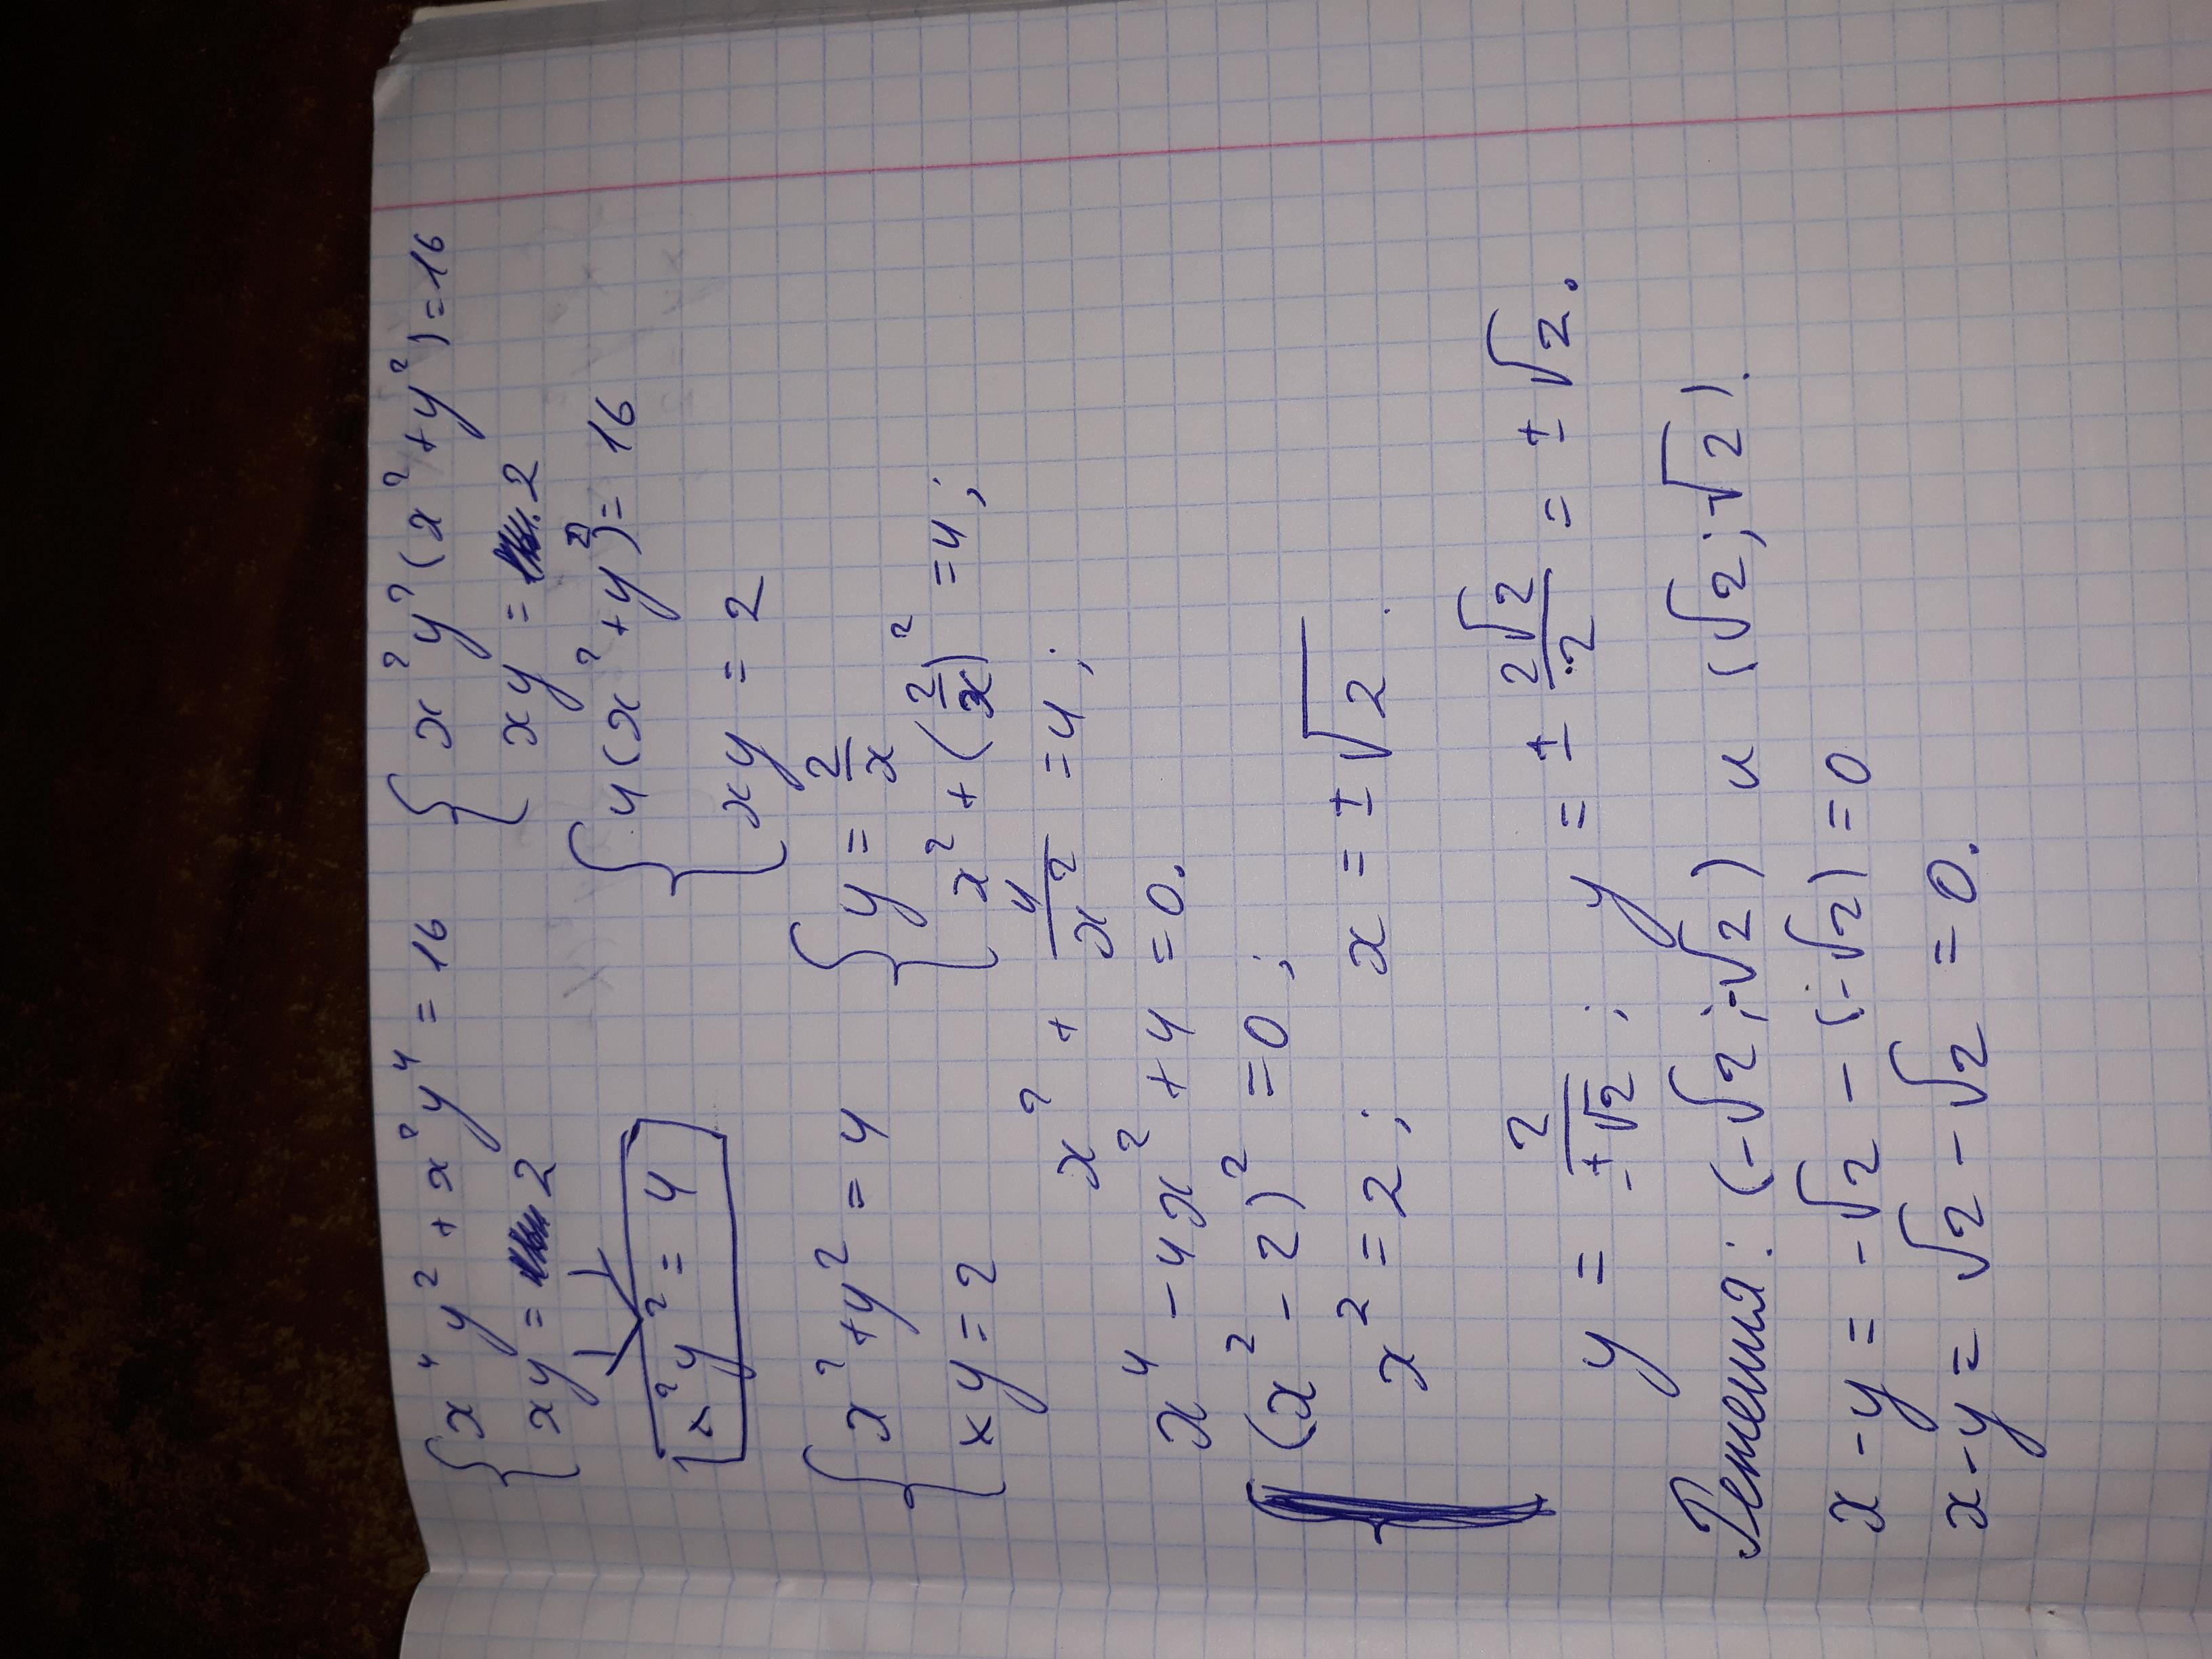 { x⁴y² + x²y⁴ = 16 { x²y²(x² + y²) = 16
xy = 2 xy = 2
x²y² = 4 { 4(x² + y²) = 16
xy = 2
{ x² + y² = 4 { y = 2/x
xy = 2 x² + (2/x)² = 4;
x² + 4/x² = 4;
x⁴ - 4x² + 4 = 0.
(x² - 2)² = 0;
x² = 2; x = ±√2.
y = 2/±√2; y = ± 2√2/2 = ±√2.
Решения: (-√2; -√2) и (√2; √2).
x - y = -√2 - (-√2) = 0
x - y = √2 - √2 = 0.